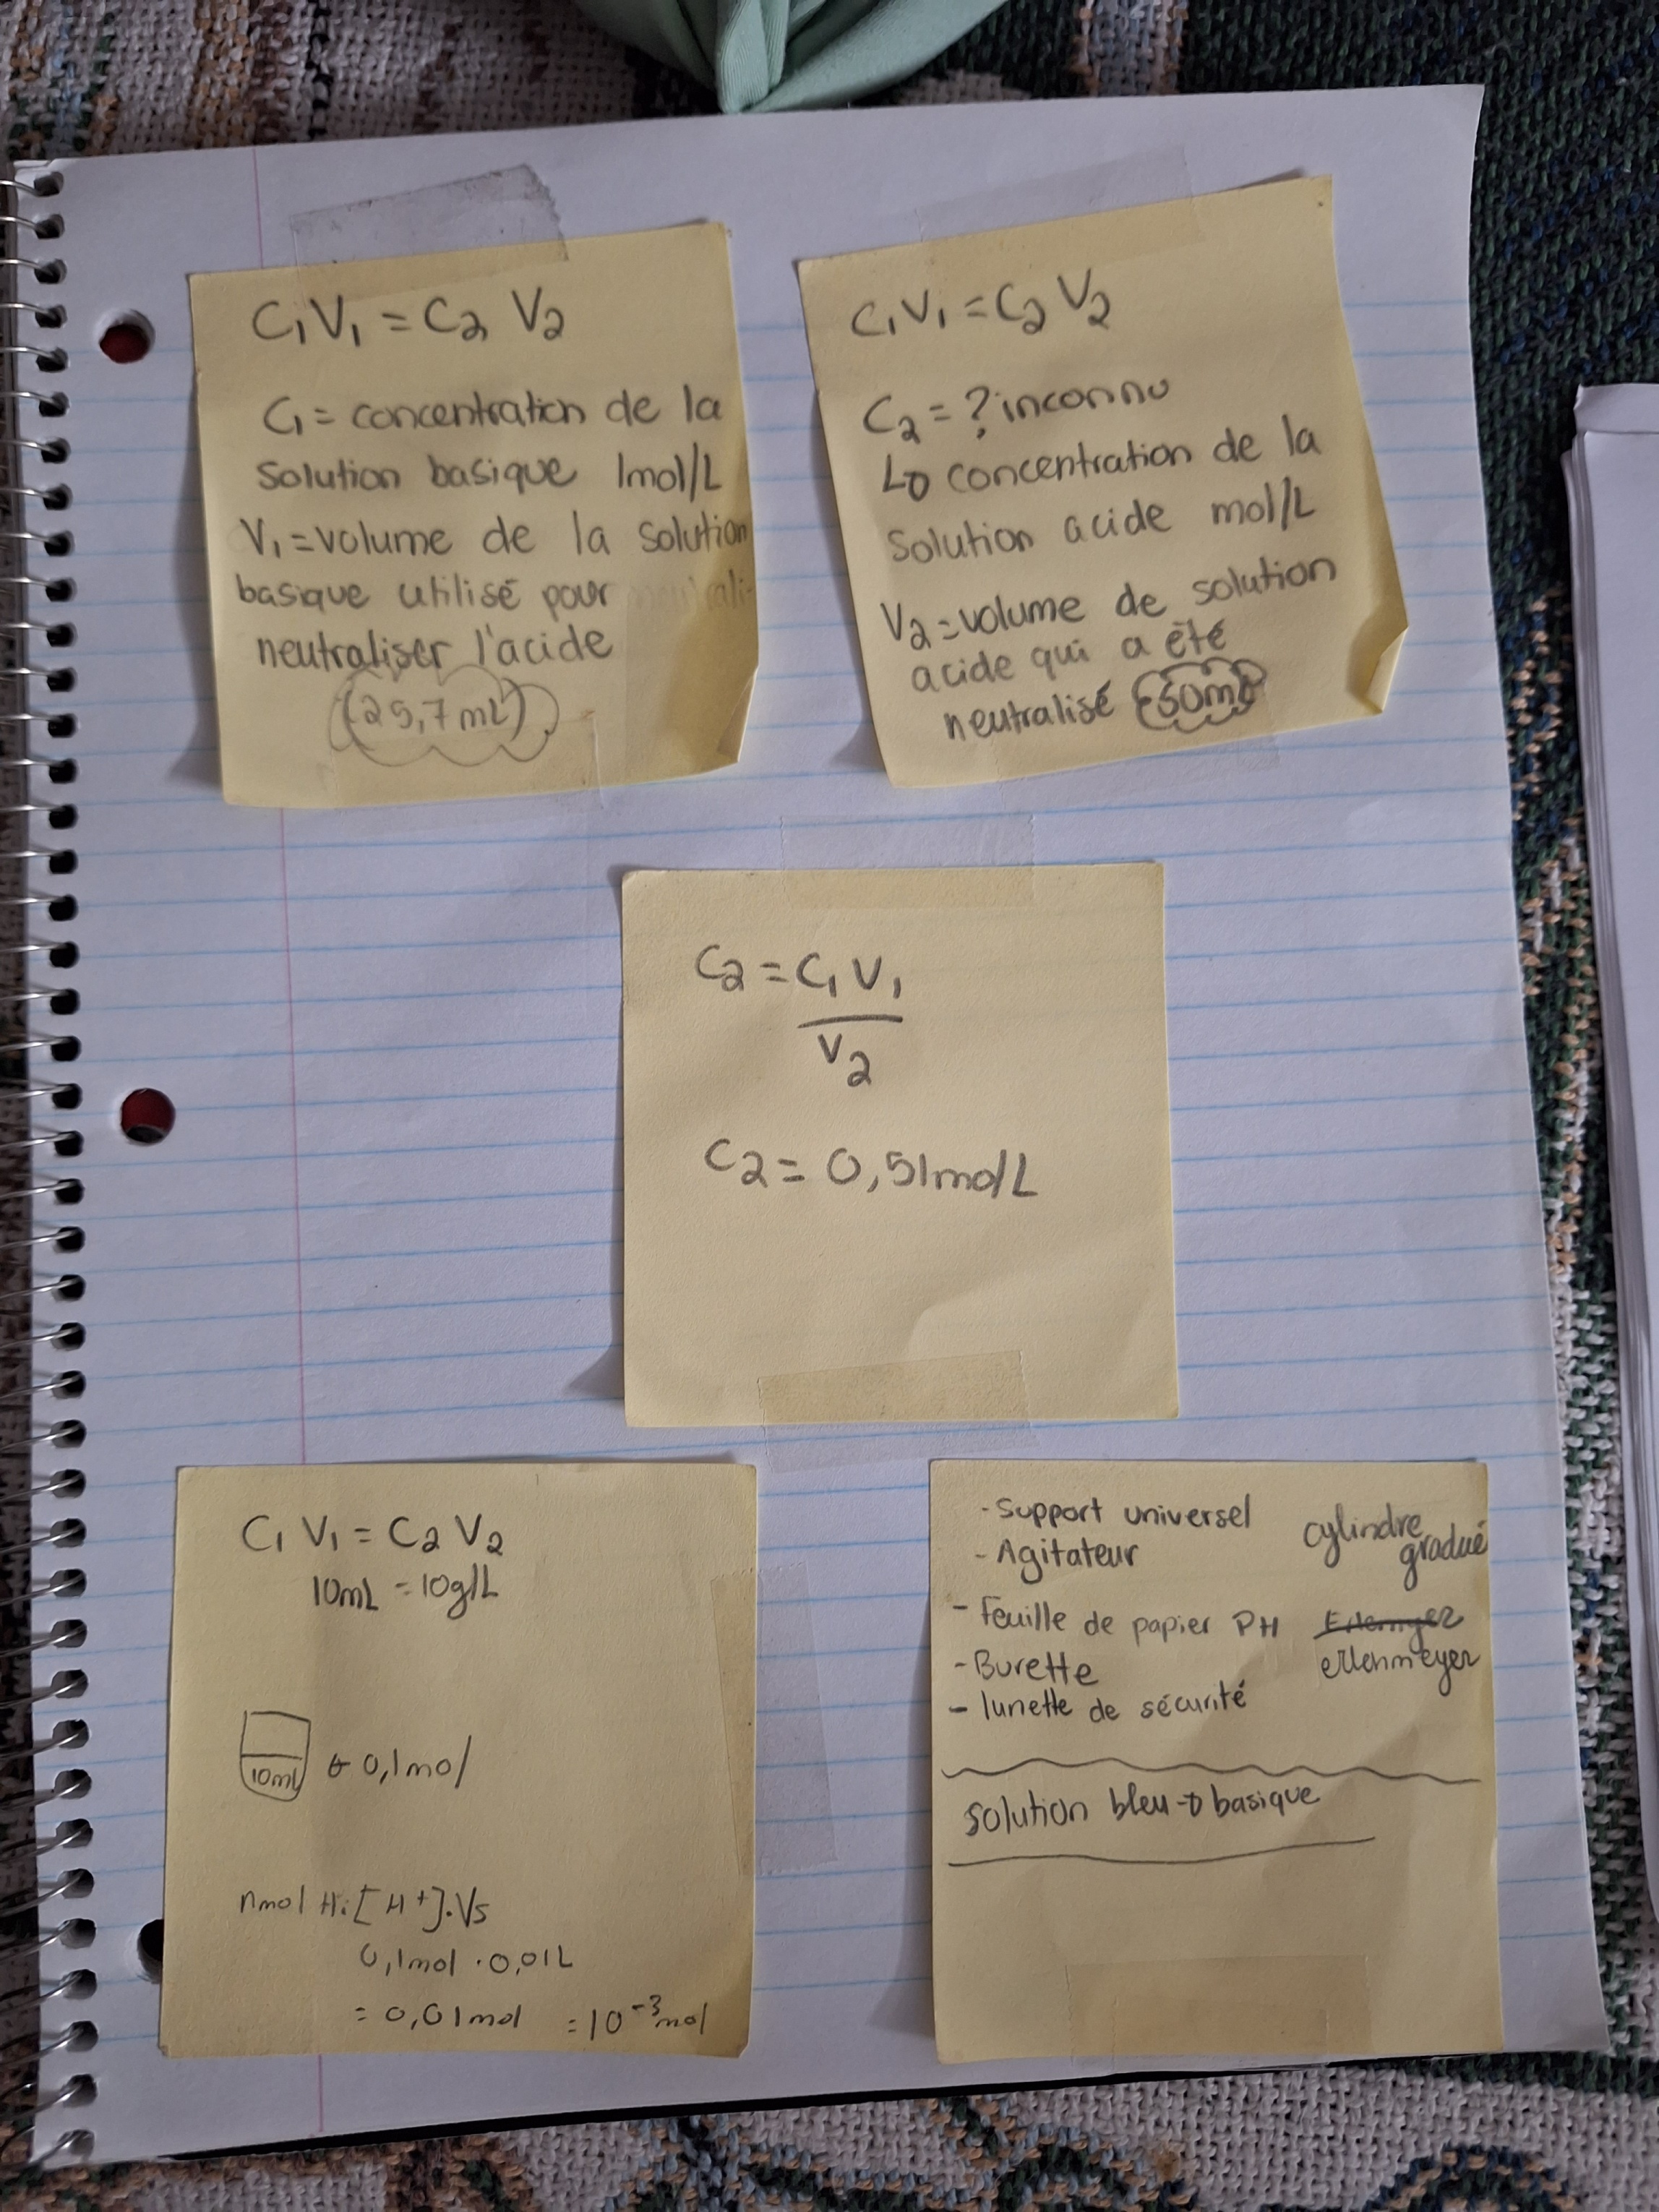 C₁V₁ = C₂ V₂
C₁ = concentration de la
solution basique 1mol/L
V₁ = volume de la solution
basique utilisé pour
neutraliser l'acide
(25,7 mL)
C₁V₁ = C₂ V₂
C₂ = ? inconnu
↳ concentration de la
solution acide mol/L
V₂ = volume de solution
acide qui a été
neutralisé (50mL)
C₂ = C₁ V₁
V₂
C₂ = 0,51mol/L
C₁ V₁ = C₂ V₂
10mL = 10g/L
10mL ← 0,1mol
nmol H: [H⁺].Vs
0,1mol · 0,01L
= 0,01mol = 10⁻³mol
- Support universel
- Agitateur
cylindre
gradué
- Feuille de papier PH
- Burette
erlenmeyer
- lunette de sécurité
solution bleu → basique